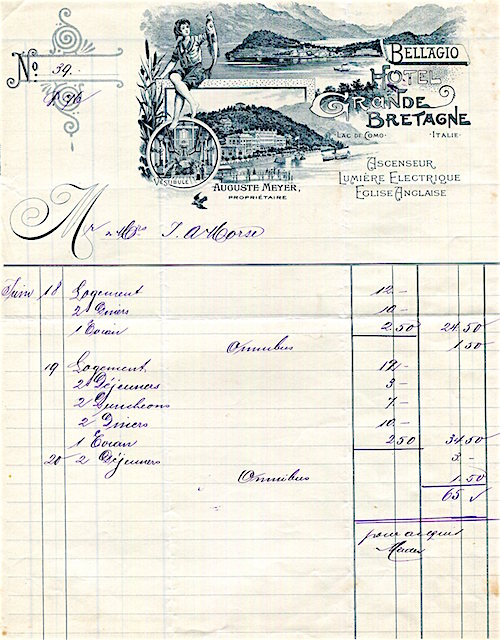 Nº 39.
BELLAGIO
HOTEL
GRANDE
BRETAGNE
LAC DE COMO · ITALIE ·
VESTIBULE
AUGUSTE MEYER,
PROPRIÉTAIRE
ASCENSEUR
LUMIÈRE ELECTRIQUE
EGLISE ANGLAISE
Mr & Mrs J. A Morse
Juin 18 Logement 12 -
2 Diners 10 -
1 Evian 2.50 24.50
Omnibus 1.50
19 Logement 12 -
2 Déjeuners 3 -
2 Luncheons 7 -
2 Diners 10 -
1 Evian 2.50 34.50
20 2 Déjeuners 3 -
Omnibus 1.50
65
pour acquit